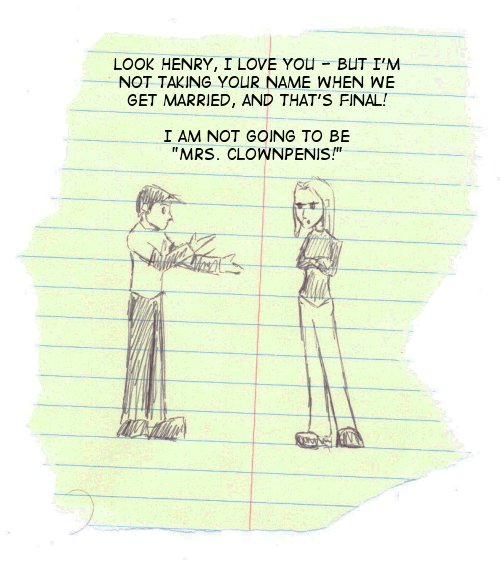 LOOK HENRY, I LOVE YOU - BUT I'M
NOT TAKING YOUR NAME WHEN WE
GET MARRIED, AND THAT'S FINAL!
I AM NOT GOING TO BE
"MRS. CLOWNPENIS!"